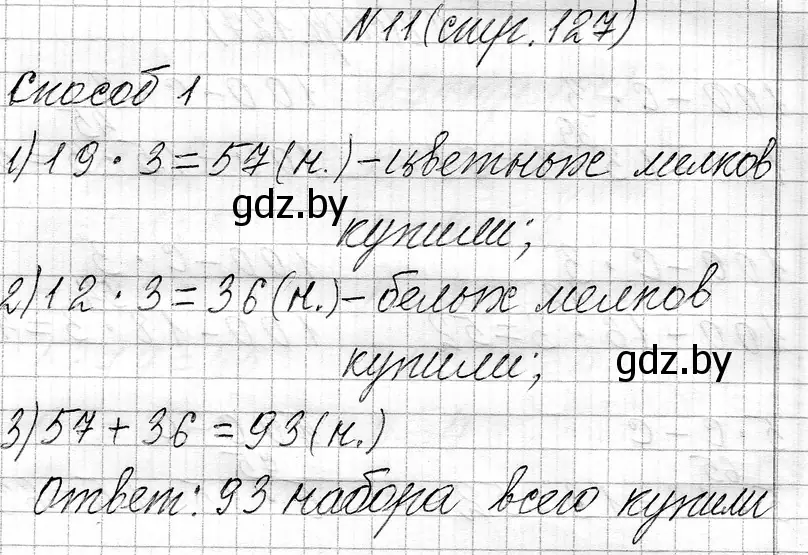 N 11 (стр. 127)
Способ 1
1) 19 · 3 = 57 (н.) – цветных мелков
gdz.by
купили;
2) 12 · 3 = 36 (н.) – белых мелков
купили;
gdz.by
3) 57 + 36 = 93 (н.)
Ответ: 93 набора всего купили